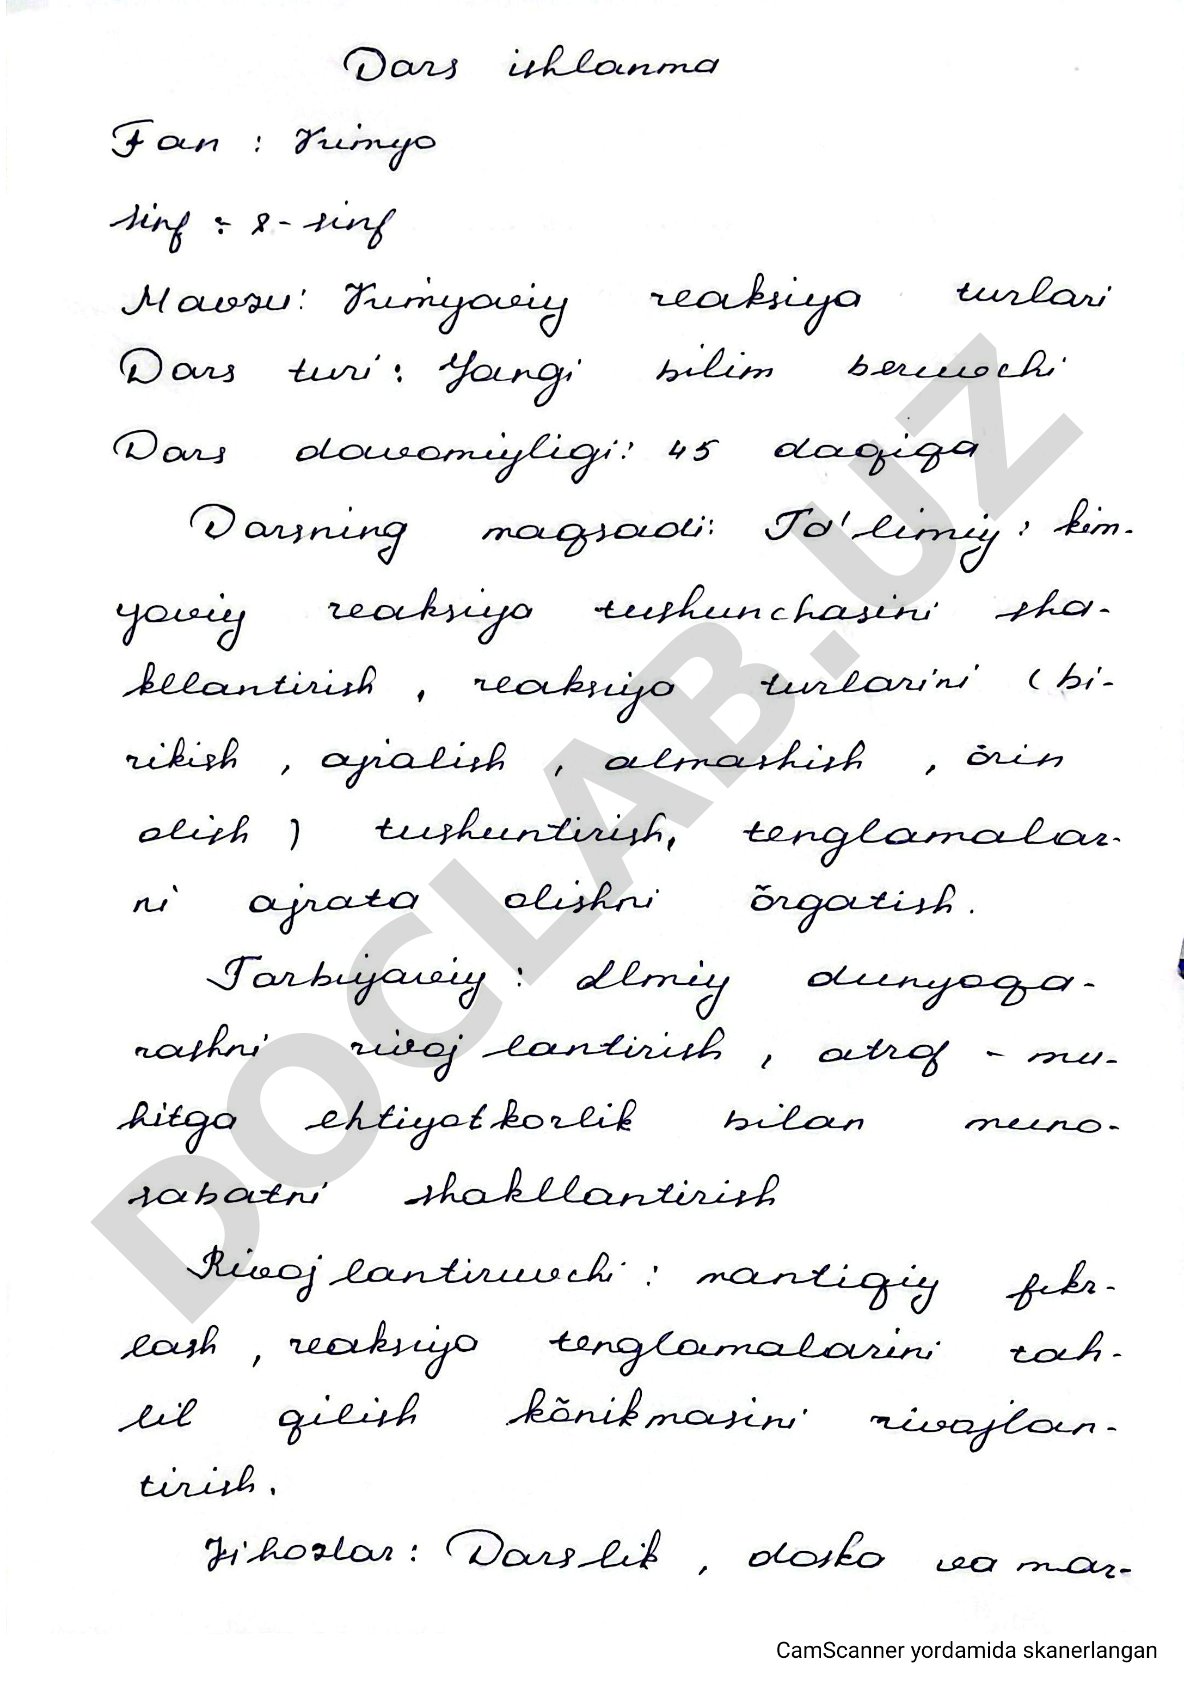 Dars ishlanma
Fan : Kimyo
Sinf : 8-sinf
Mavzu: Kimyoviy reaksiya turlari
Dars turi: Yangi bilim beruvchi
Dars davomiyligi: 45 daqiqa
Darsning maqsadi: Ta'limiy: kim-
yoviy reaksiya tushunchasini sha-
kllantirish, reaksiya turlarini (bi-
rikish, ajralish, almashish, õrin
olish) tushuntirish, tenglamalar-
ni ajrata olishni õrgatish.
Tarbiyaviy: Ilmiy dunyoqa-
rashni rivojlantirish, atrof-mu-
hitga ehtiyotkorlik bilan muno-
sabatni shakllantirish
Rivojlantiruvchi: mantiqiy fikr-
lash, reaksiya tenglamalarini tah-
lil qilish kõnikmasini rivojlan-
tirish.
Jihozlar: Darslik, doska va mar-
DOCLAB.UZ
CamScanner yordamida skanerlangan